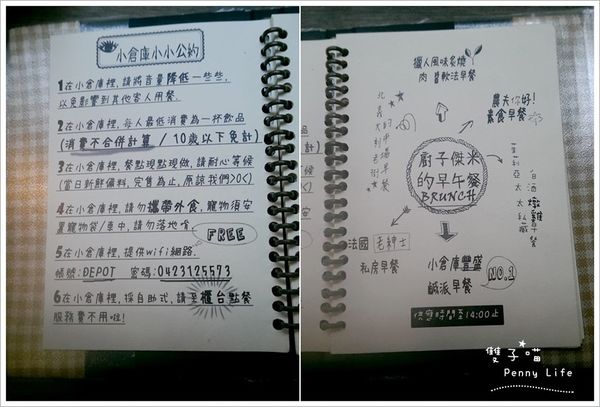 小倉庫小小公約
1在小倉庫裡,請將音量降低一些些,
以免影響到其他客人用餐.
2在小倉庫裡,每人最低消費為一杯飲品
(消費不合併計算/10歲以下免計)
3在小倉庫裡,餐點現點現做,請耐心等候
(當日新鮮備料,完售為止,原諒我們>O<)
4在小倉庫裡,請勿攜帶外食,寵物須安
置寵物袋/車中,請勿落地唷
FREE
5在小倉庫裡,提供wifi網路.
帳號:DEPOT 密碼:0423125573
6在小倉庫裡,採自助式,請至櫃台點餐
服務費不用啦!
獵人風味炙燒
肉 普軟法早餐
農夫你好!
素食早餐
北義大利老街
的中場早餐
廚子傑米
的早午餐
BRUNCH
里莉亞太太私藏
白酒燉雞早餐
法國老紳士
私房早餐
小倉庫豐盛
鹹派早餐
NO.1
供餐時間至14:00止
雙子喵
Penny Life